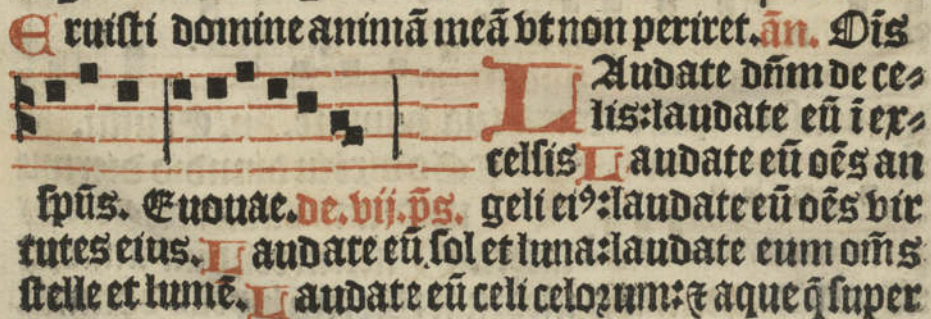 Eruisti domine animā meā vt non periret. añ. Oīs
LAudate dn̄m de ce⸗
lis: laudate eū ī ex⸗
celsis Laudate eū oēs an
spūs. Euouae. de. vij. p̄s. geli eiꝰ: laudate eū oēs vir
tutes eius. Laudate eū sol et luna: laudate eum om̄s
stelle et lumē. Laudate eū celi celoꝛum: ⁊ aque q̄ super